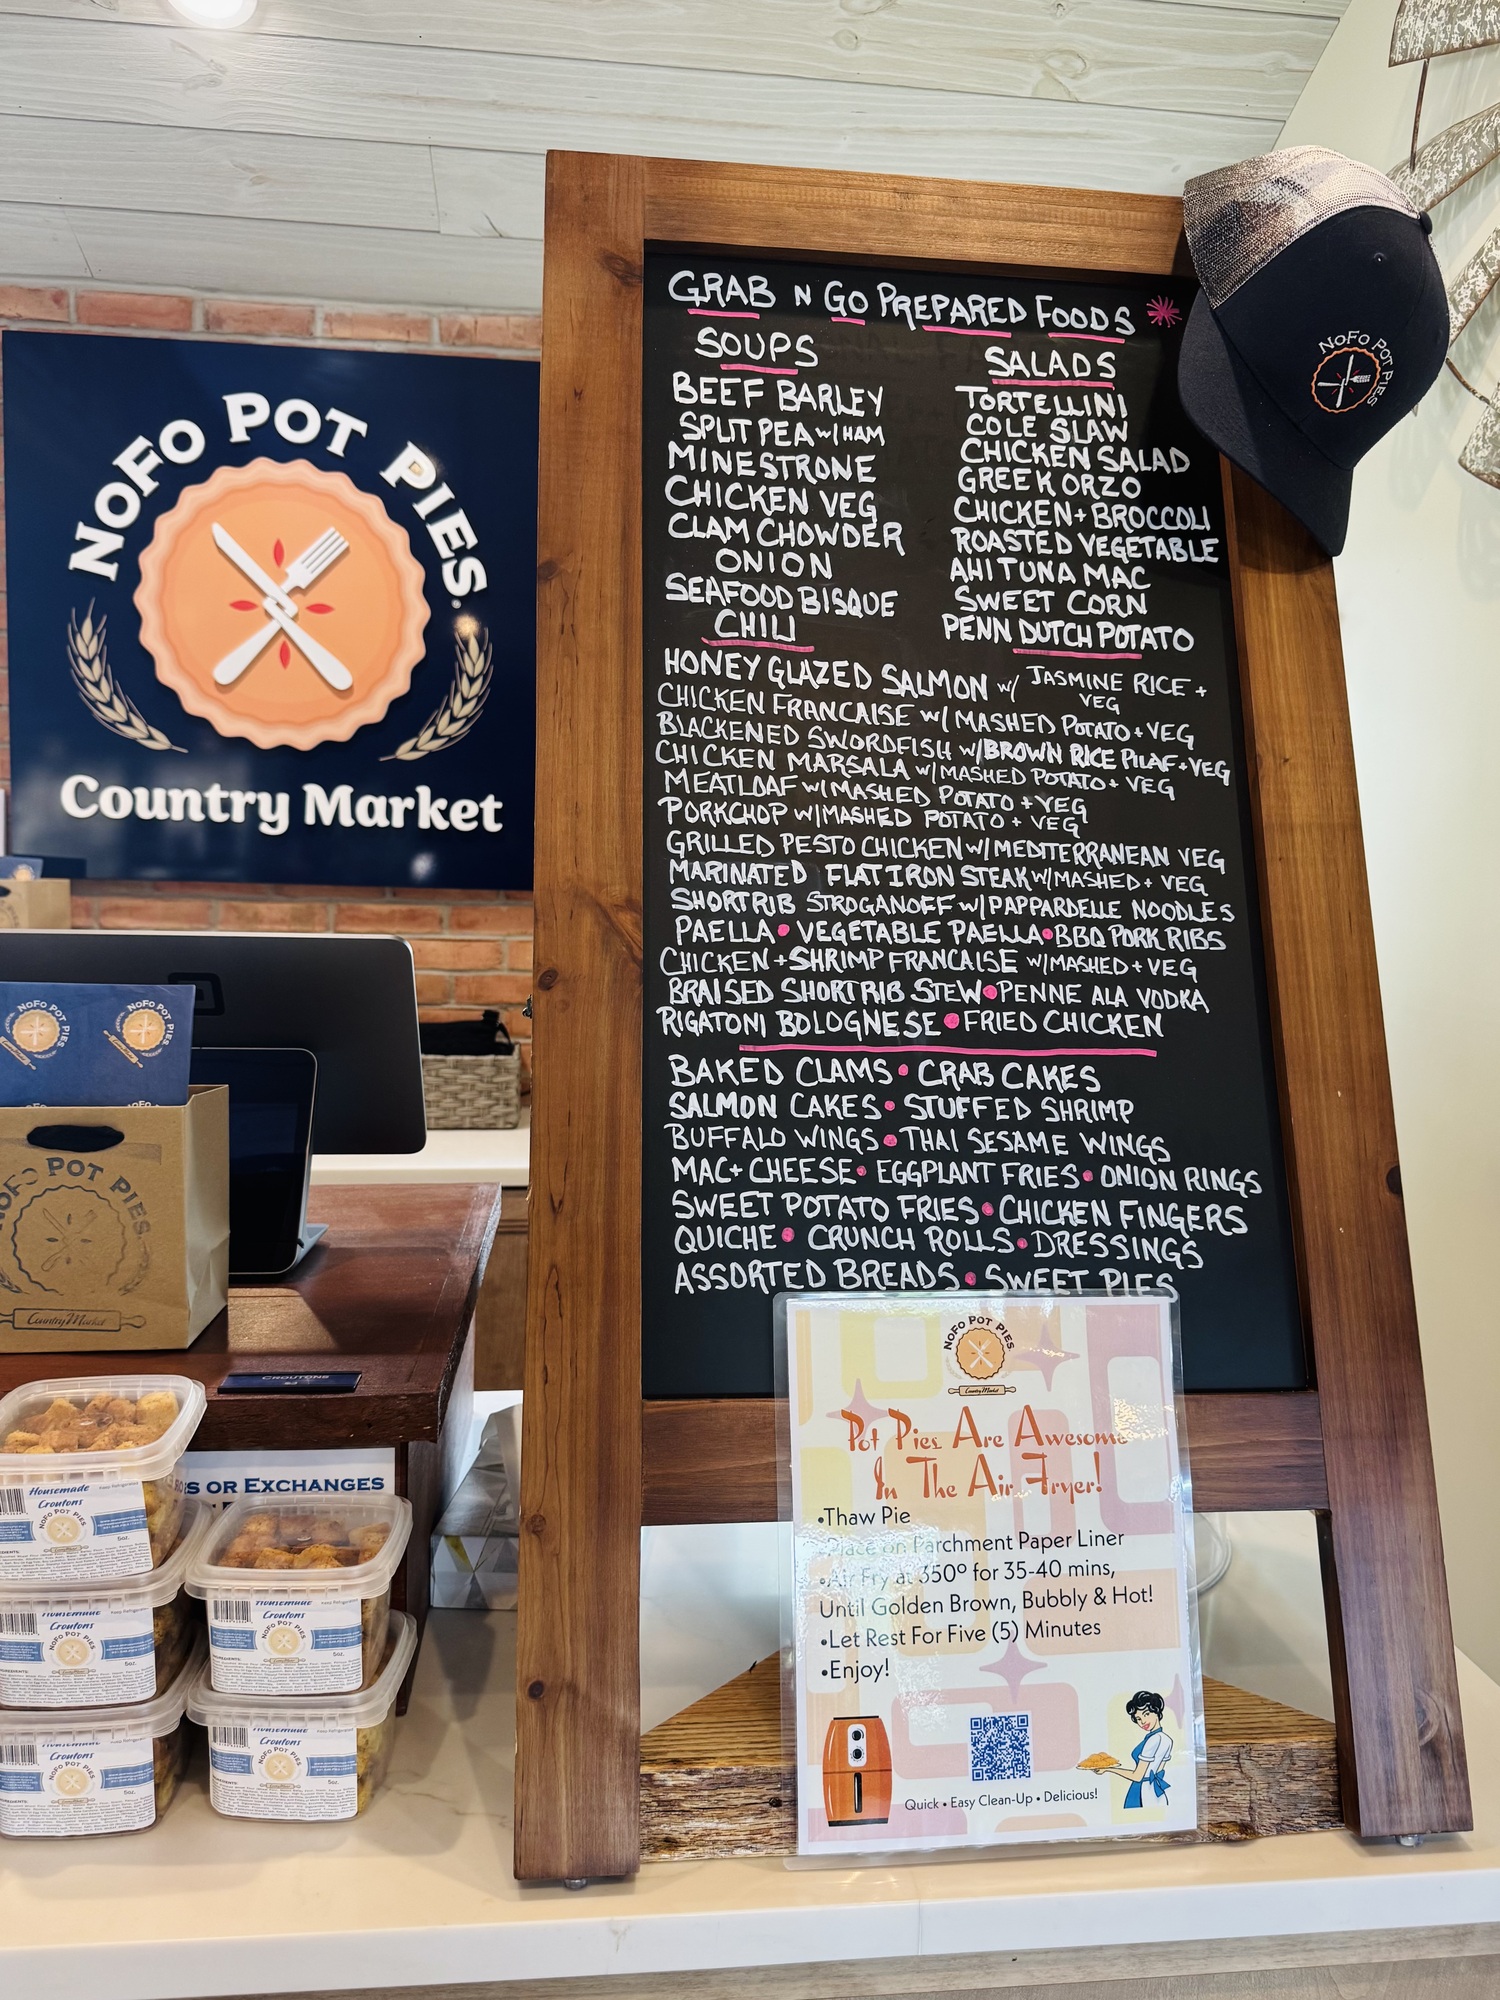 NOFO POT PIES
Country Market
GRAB N GO PREPARED FOODS
SOUPS
BEEF BARLEY
SPLIT PEA w/ HAM
MINESTRONE
CHICKEN VEG
CLAM CHOWDER
ONION
SEAFOOD BISQUE
CHILI
SALADS
TORTELLINI
COLE SLAW
CHICKEN SALAD
GREEK ORZO
CHICKEN + BROCCOLI
ROASTED VEGETABLE
AHI TUNA MAC
SWEET CORN
PENN DUTCH POTATO
HONEY GLAZED SALMON w/ JASMINE RICE +
VEG
CHICKEN FRANCAISE w/ MASHED POTATO + VEG
BLACKENED SWORDFISH w/ BROWN RICE PILAF + VEG
CHICKEN MARSALA w/ MASHED POTATO + VEG
MEATLOAF w/ MASHED POTATO + VEG
PORKCHOP w/ MASHED POTATO + VEG
GRILLED PESTO CHICKEN w/ MEDITERRANEAN VEG
MARINATED FLAT IRON STEAK w/ MASHED + VEG
SHORTRIB STROGANOFF w/ PAPPARDELLE NOODLES
PAELLA • VEGETABLE PAELLA • BBQ PORK RIBS
CHICKEN + SHRIMP FRANCAISE w/ MASHED + VEG
BRAISED SHORTRIB STEW • PENNE ALA VODKA
RIGATONI BOLOGNESE • FRIED CHICKEN
BAKED CLAMS • CRAB CAKES
SALMON CAKES • STUFFED SHRIMP
BUFFALO WINGS • THAI SESAME WINGS
MAC + CHEESE • EGGPLANT FRIES • ONION RINGS
SWEET POTATO FRIES • CHICKEN FINGERS
QUICHE • CRUNCH ROLLS • DRESSINGS
ASSORTED BREADS • SWEET PIES
NOFO POT PIES
NOFO POT PIES
Country Market
Pot Pies Are Awesome
In The Air Fryer!
•Thaw Pie
•Place on Parchment Paper Liner
•Air Fry at 350º for 35-40 mins,
Until Golden Brown, Bubbly & Hot!
•Let Rest For Five (5) Minutes
•Enjoy!
Quick • Easy Clean-Up • Delicious!
NOFO POT PIES
NOFO POT PIES
NOFO POT PIES
Country Market
CROUTONS
OR EXCHANGES
Homemade
Croutons
Keep Refrigerated
NOFO POT PIES
5oz.
Homemade
Croutons
NOFO POT PIES
5oz.
Homemade
Croutons
NOFO POT PIES
5oz.
Homemade
Croutons
NOFO POT PIES
5oz.
Homemade
Croutons
NOFO POT PIES
5oz.